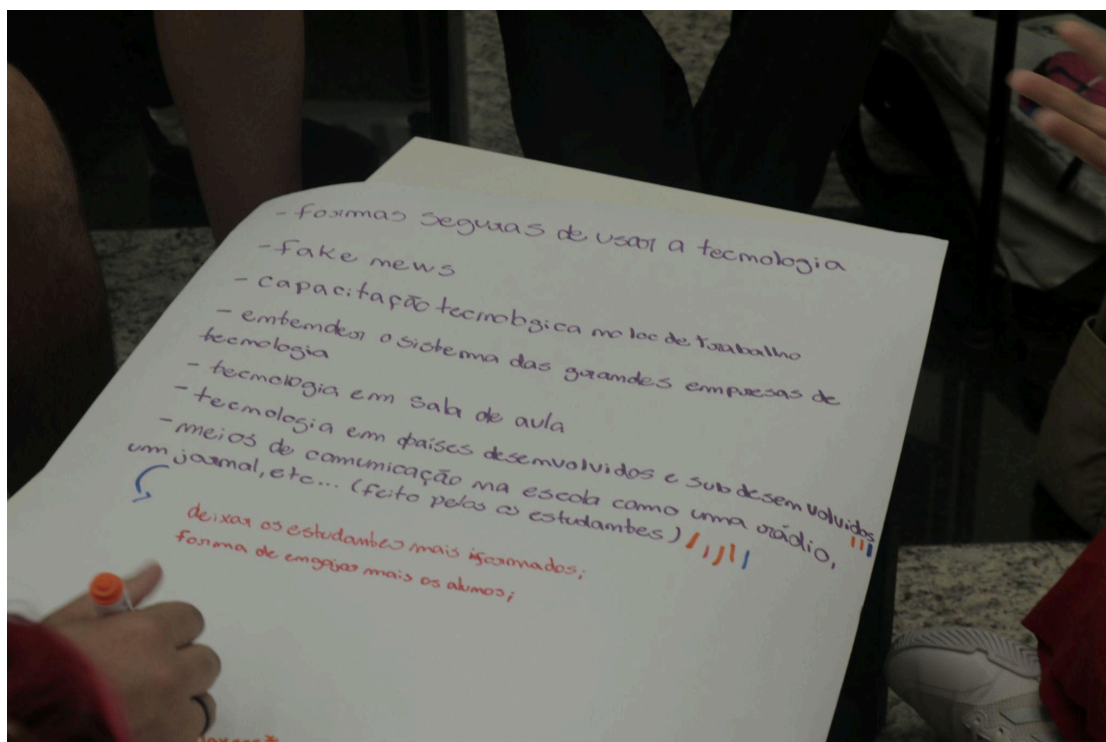 - formas seguras de usar a tecnologia
- fake news
- capacitação tecnologica no loc de trabalho
- entender o sistema das grandes empresas de
tecnologia
- tecnologia em sala de aula
- tecnologia em países desenvolvidos e subdesenvolvidos
- meios de comunicação na escola como uma rádio,
um jornal, etc... (feito pelos os estudantes)
deixar os estudantes mais iformados;
forma de engajar mais os alunos;